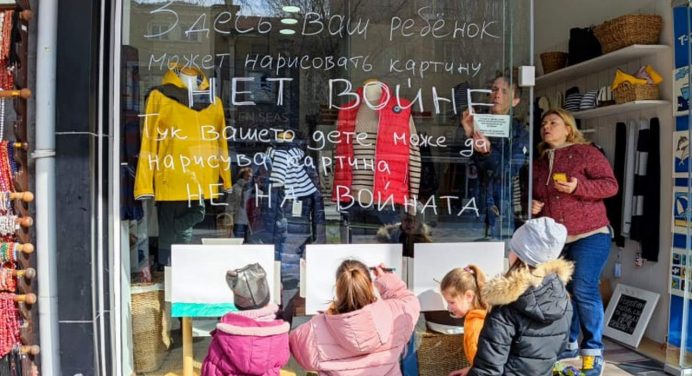 Здесь ваш ребёнок
может нарисовать картину
НЕТ ВОЙНЕ
Тук вашето дете може да
нарисува картина
НЕ НА ВОЙНАТА